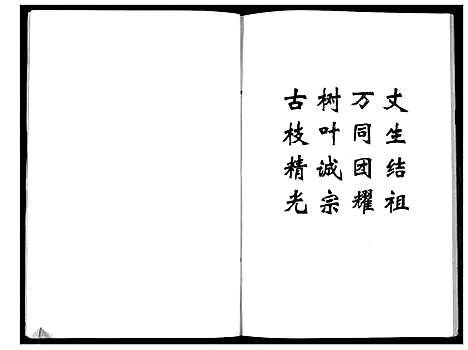 古树万丈
枝叶同生
精诚团结
光宗耀祖